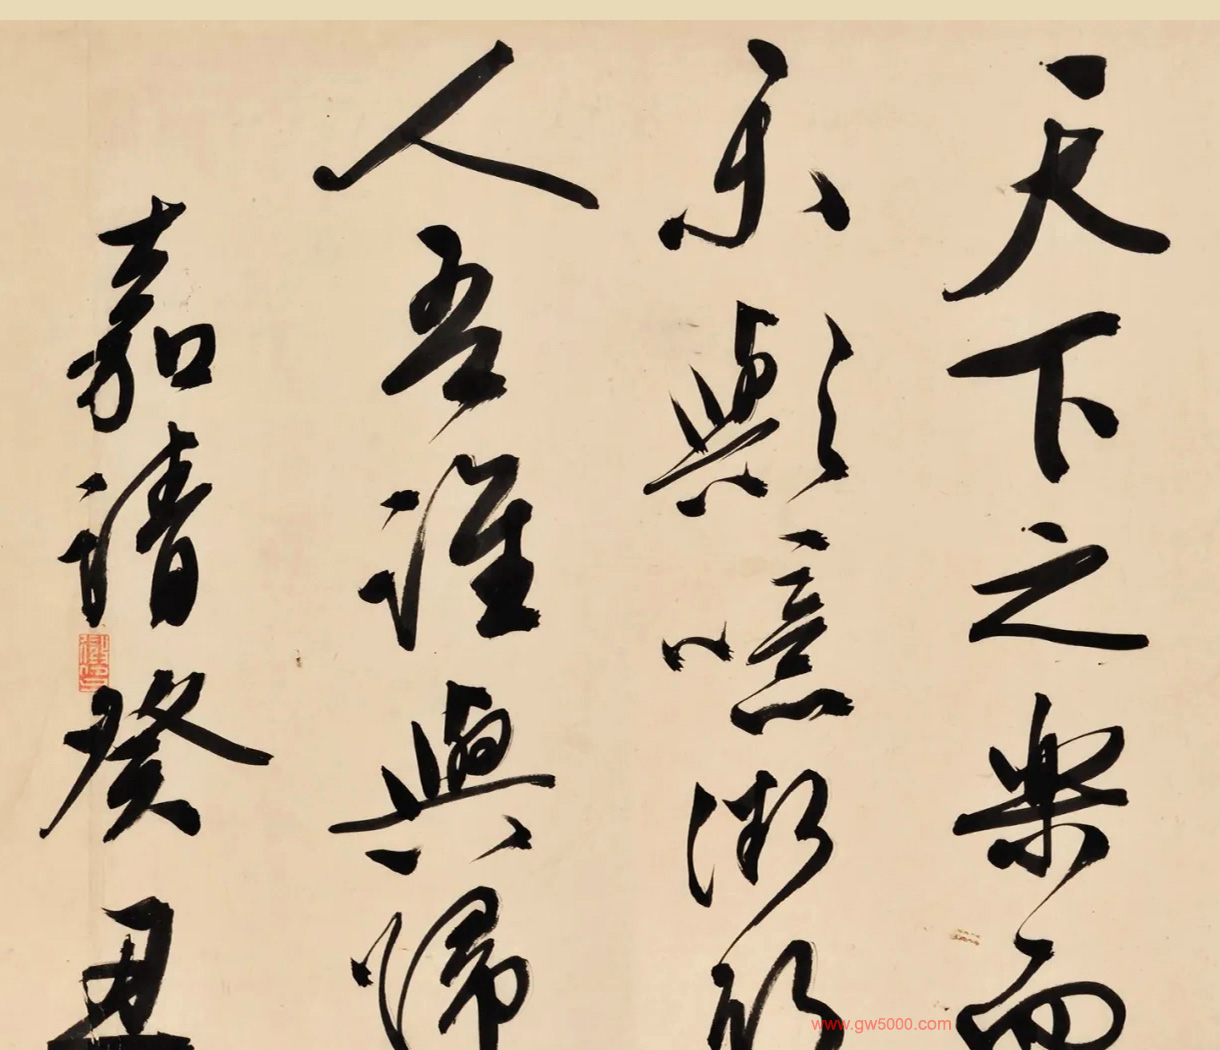 天下之樂而
樂歟噫微斯
人吾誰與歸
嘉靖癸丑
www.gw5000.com